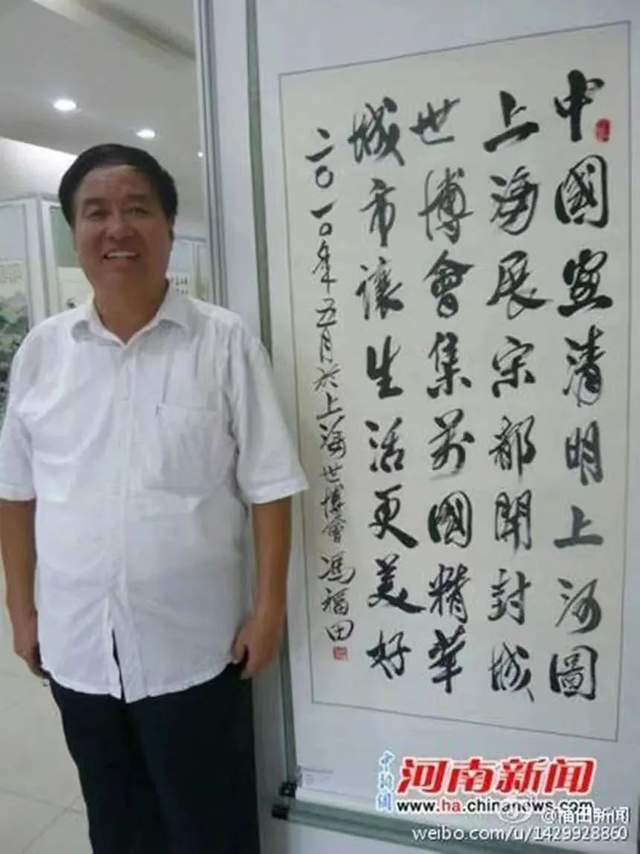 中國清明上河圖
上海展宋都開封城
世博會集萬國精華
城市讓生活更美好
二〇一〇年五月於上海世博會 馮福田
中新網 河南新闻
www.ha.chinanews.com
@福田新闻
weibo.com/u/1429928860